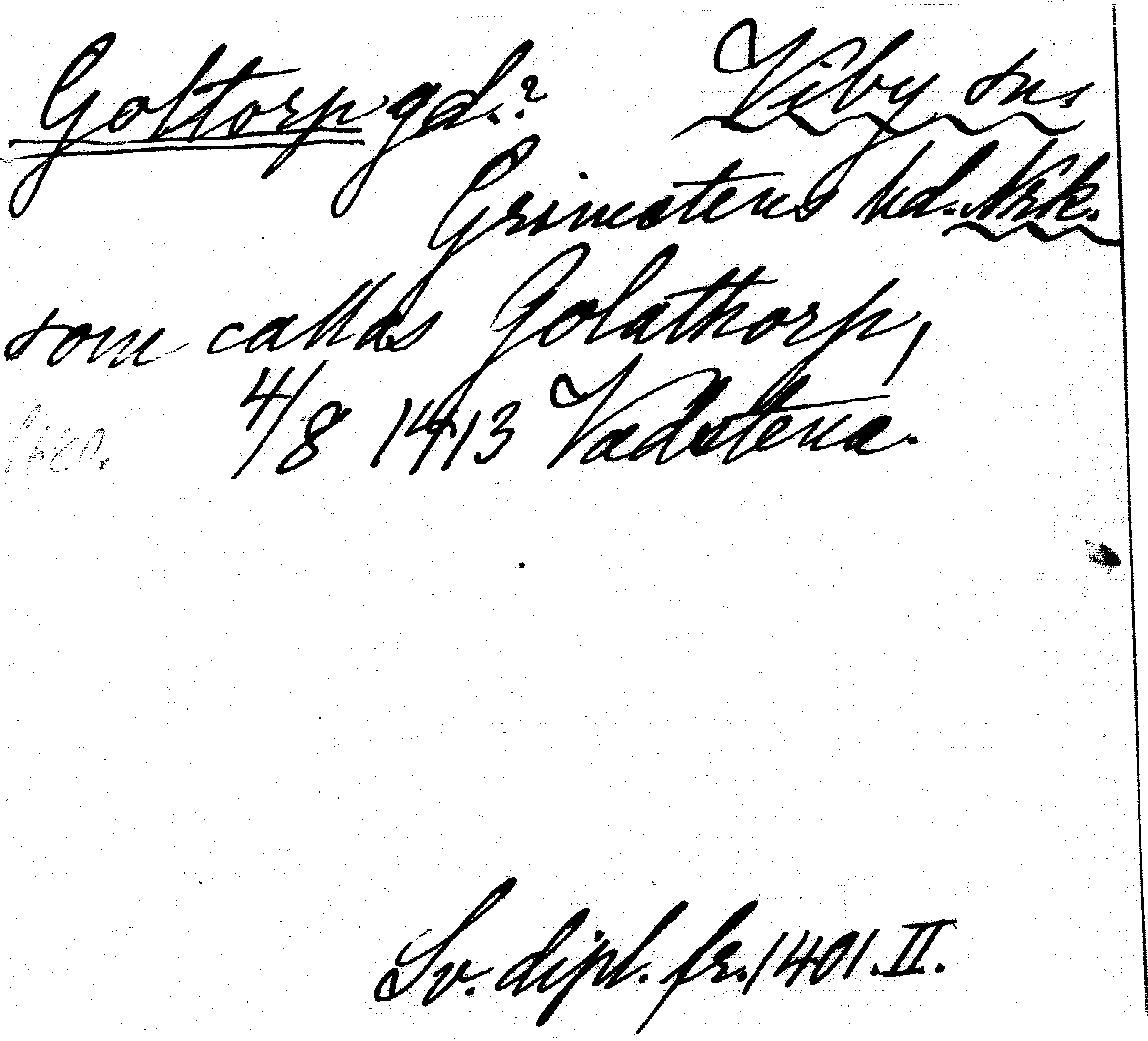 Goltorp gd.? Viby sn.
Grimstens hd. Nrk.
som callas Golathorp,
4/8 1413 Vadstena.
Sv. dipl. fr. 1401. II.